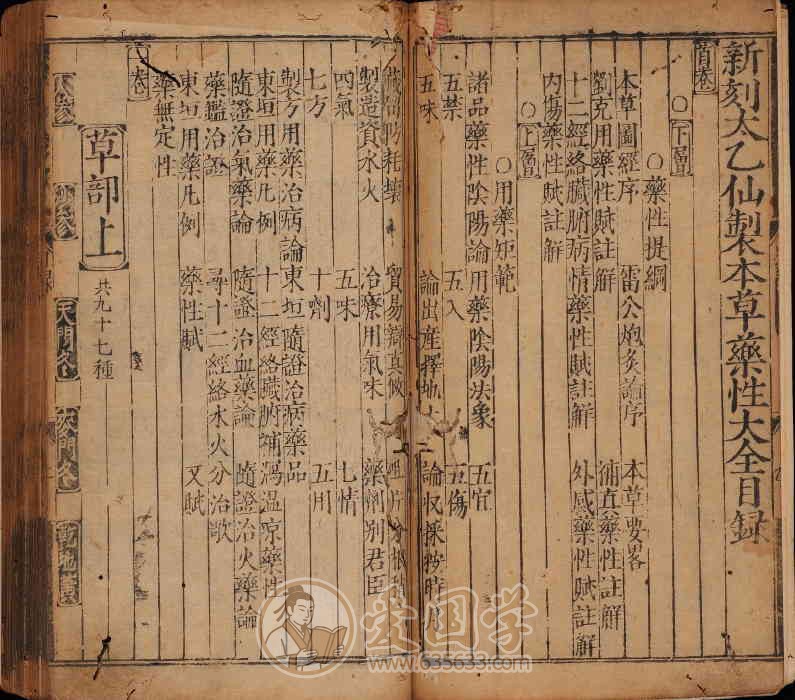 新刻太乙仙製本草藥性大全目録
首卷
○下層
○藥性提綱
本草圖經序 雷公炮炙論序 本草要畧
劉克用藥性賦註解 藥性註解
十二經絡臟腑病情藥性賦註解 外感藥性賦註解
内傷藥性賦註解
○上層
○用藥矩範
諸品藥性陰陽論 用藥陰陽法象 五宜
五禁 五入 五傷
五味 論出産擇地土 論收採按時月
藏留防耗壊 貿易辯真假
製造資水火 治療用氣味 藥劑别君臣
四氣 五味 七情
七方 十劑 五用
製方用藥治病論 東垣隨證治病藥品
東垣用藥凡例 十二經絡臟腑補瀉温凉藥性
隨證治氣藥論 隨證治血藥論 隨證治火藥論
藥鑑治證 尋十二經絡水火分治歌
東垣用藥凡例 藥性賦 又賦
藥無定性
一卷
草部上 共九十七種
人參 沙參 天門冬 麥門冬
爱国学
www.635633.com